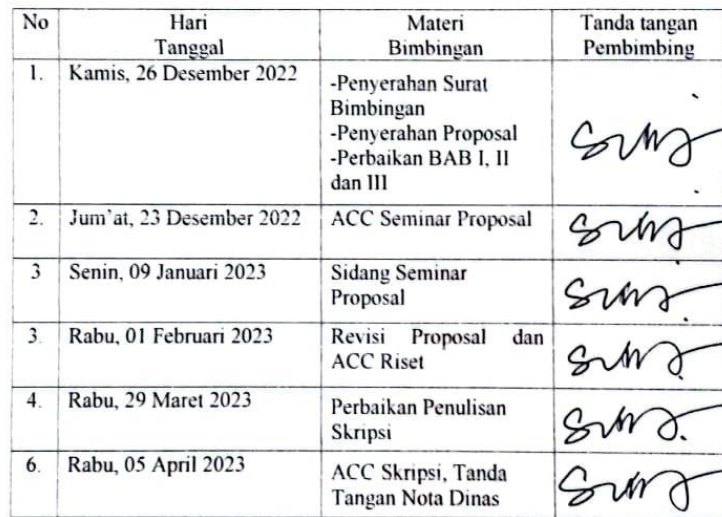 No
Hari
Tanggal
Materi
Bimbingan
Tanda tangan
Pembimbing
1.
Kamis, 26 Desember 2022
-Penyerahan Surat
Bimbingan
-Penyerahan Proposal
-Perbaikan BAB I, II
dan III
2.
Jum'at, 23 Desember 2022
ACC Seminar Proposal
3
Senin, 09 Januari 2023
Sidang Seminar
Proposal
3.
Rabu, 01 Februari 2023
Revisi Proposal dan
ACC Riset
4.
Rabu, 29 Maret 2023
Perbaikan Penulisan
Skripsi
6.
Rabu, 05 April 2023
ACC Skripsi, Tanda
Tangan Nota Dinas